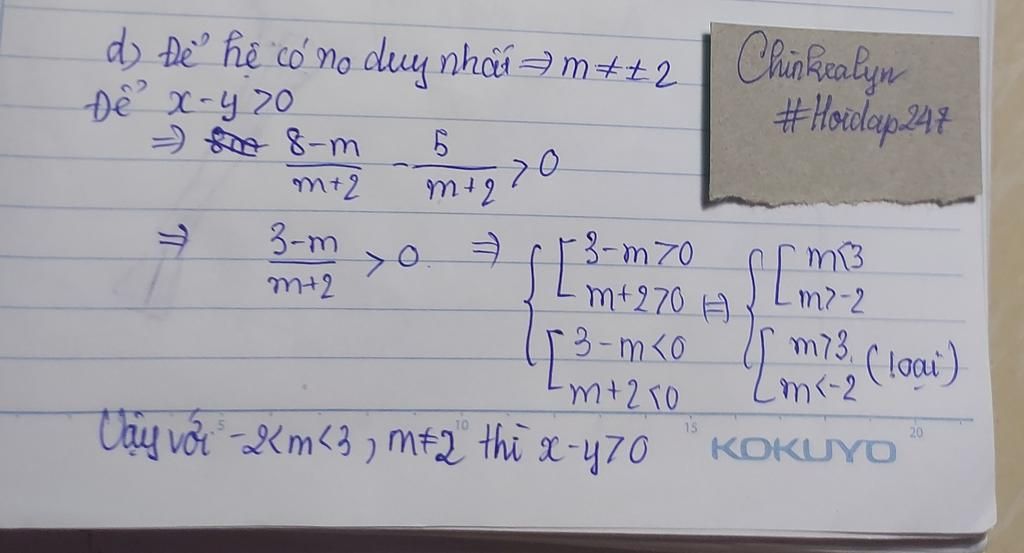 d) Để hệ có no duy nhất ⇒ m ≠ ± 2
Để x - y > 0
⇒ 8-m/m+2 - 5/m+2 > 0
⇒ 3-m/m+2 > 0. ⇒ { [ 3-m>0 m+2>0 [ 3-m<0 m+2<0 ⇔ { [ m<3 m>-2 [ m>3 m<-2 (loại)
Vậy với -2<m<3, m≠2 thì x-y>0
Chinkealyn
#Hoidap247
5 10 15 20
KOKUYO